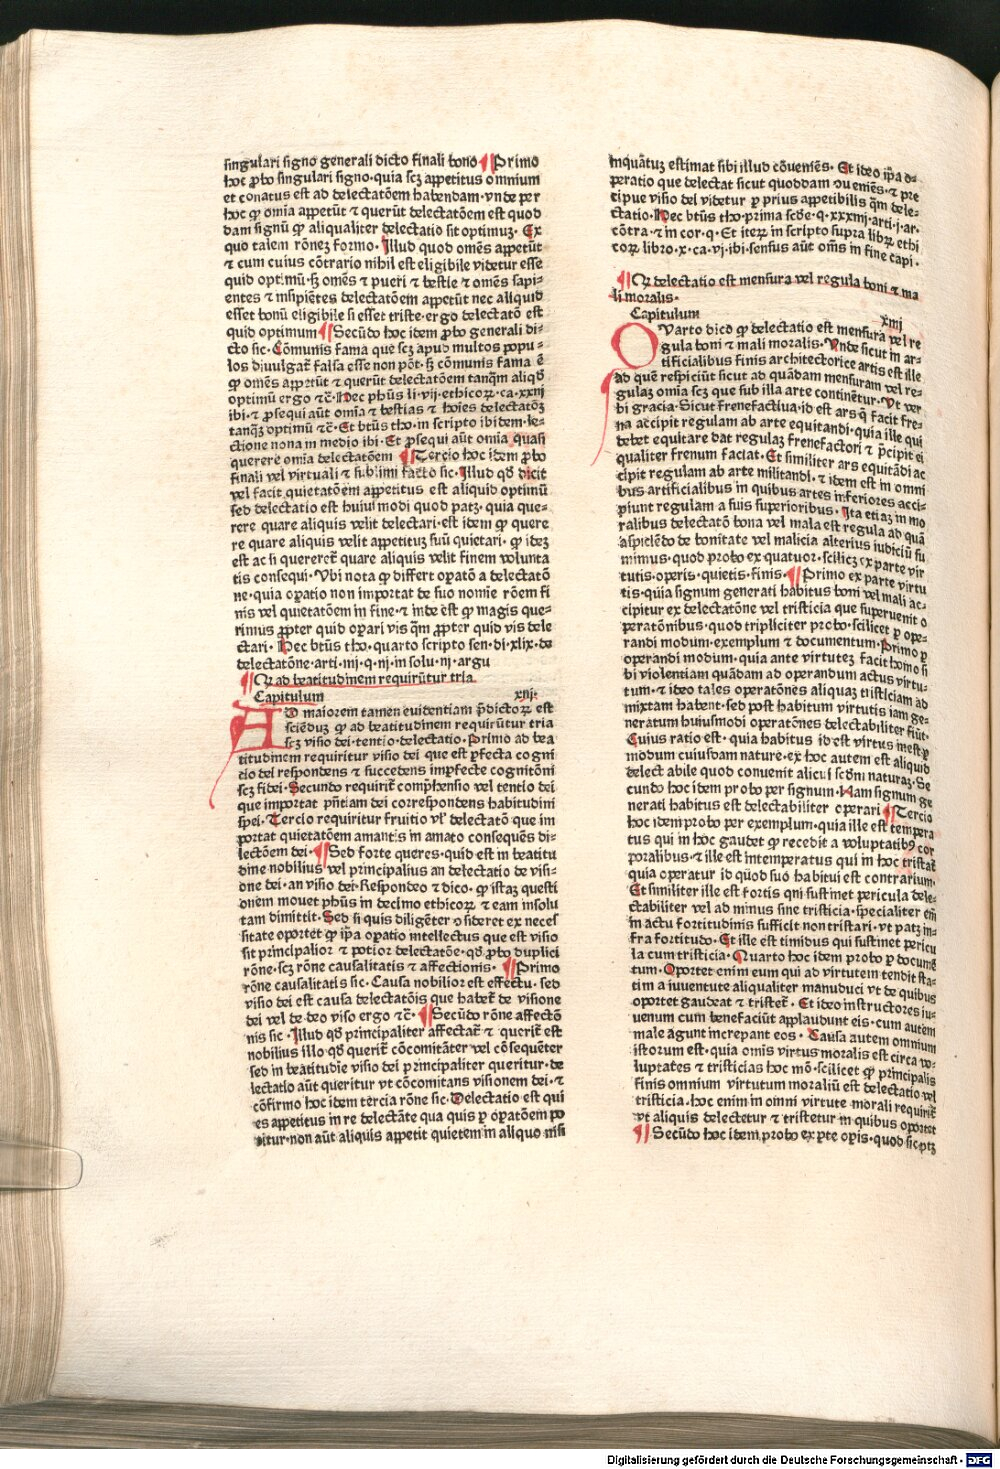 singulari signo generali dicto finali bono ¶ Primo
hoc ꝓbo singulari signo· quia scꝫ appetitus omnium
et conatus est ad delectatōem habendam· vnde per
hoc ꝙ omīa appetūt ⁊ querūt delectatōem est quod
dam signū ꝙ aliqualiter delectatio sit optimuꝫ· Ex
quo talem rōneꝫ formo· Illud quod omēs appetūt
⁊ cum cuius cōtrario nihil est eligibile videtur esse
quid optimū· sꝫ omēs ⁊ pueri ⁊ bestie ⁊ omēs sapi-
entes ⁊ insipiētes delectatōem appetūt nec aliquid
esset bonū eligibile si esset triste· ergo delectatō est
quid optimum ¶ Secūdo hoc idem ꝓbo generali di-
cto sic· Cōmunis fama que scꝫ apud multos popu-
los diuulgat̄ falsa esse non pōt· sꝫ cōmunis fama ē
ꝙ omēs appetūt ⁊ querūt delectatōem tanq̄m aliqd̄
optimū ergo ⁊c̄· Hec ph̄us li·vij·ethicoꝝ·ca·xxiij
ibi·⁊ ꝓsequi aūt omīa ⁊ bestias ⁊ hoīes delectatōꝫ
tanq̄ꝫ optimū ⁊c̄· Et btūs tho·in scripto ibidem·le-
ctione nona in medio ibi· Et ꝓsequi aūt omīa quasi
querere omīa delectatōem ¶ Tercio hoc idem ꝓbo
finali vel virtuali ⁊ sublimi facto sic· Illud qd̄ dicit
vel facit quietatōem appetitus est aliquid optimū
sed delectatio est huiusmodi quod patꝫ· quia que-
rere quare aliquis velit delectari· est idem ꝙ quere
re quare aliquis velit appetituꝫ suū quietari· ꝙ ideꝫ
est ac si quereret̄ quare aliquis velit finem volunta
tis consequi· Vbi nota ꝙ differt opatō a delectatō
ne· quia opatio non importat de suo nomine rōem fi
nis vel quietatōem in fine· ⁊ inde est ꝙ magis que-
rimus ꝓpter quid opari vis q̄m ꝓpter quid vis dele
ctari· Hec btūs tho·quarto scripto sen·di·xlix·de
delectatōne·arti·iij·q·iij·in solu·iij·argu
¶ Ꝙ ad beatitudinem requirūtur tria
Capitulum xiij·
AD maiorem tamen euidentiam p̄dictoꝝ est
sciēduꝫ ꝙ ad beatitudinem requirūtur tria
scꝫ visio dei·tentio·delectatio· Primo ad bea
titudinem requiritur visio dei que est ꝑfecta cogni
tio dei respondens ⁊ succedens imꝑfecte cognitōni
scꝫ fidei· Secundo requirit̄ comp̄hensio vel tentio dei
que importat pn̄tiam dei correspondens habitudini
spei· Tercio requiritur fruitio vl̓ delectatō que im
portat quietatōem amantis in amato consequēs di-
lectōem dei· ¶ Sed forte queres· quid est in beatitu
dine nobilius vel principalius an delectatio de visi-
one dei· an visio dei· Respondeo ⁊ dico· ꝙ istaꝫ questi
onem mouet ph̄us in decimo ethicoꝝ ⁊ eam insolu
tam dimittit· Sed si quis diligēter ꝯsideret ex neces
sitate oportet ꝙ ip̄a opatio intellectus que est visio
sit principalior ⁊ potior delectatōe· qd̄ ꝓbo duplici
rōne· scꝫ rōne causalitatis ⁊ affectionis· ¶ Primo
rōne causalitatis sic· Causa nobilior est effectu· sed
visio dei est causa delectatōis que habet̄ de visione
dei vel de deo viso ergo ⁊c̄· ¶ Secūdo rōne affectō
nis sic· Illud qd̄ principaliter affectat̄ ⁊ querit̄ est
nobilius illo qd̄ querit̄ cōcomitāter vel cōsequēter
sed in beatitudīe visio dei principaliter queritur· de
lectatio aūt queritur vt cōcomitans visionem dei· ⁊
cōfirmo hoc idem tercia rōne sic· Delectatio est qui
es appetitus in re delectāte qua quis ꝑ opatōem po
titur· non aūt aliquis appetit quietem in aliquo nisi
inquātuꝫ estimat sibi illud cōueniēs· Et ideo ip̄a o-
peratio que delectat sicut quoddam ꝯueniēs· ⁊ pre
cipue visio dei videtur ꝑ prius appetibilis q̄m dele-
ctatio· Hec btūs tho·prima scd̄e·q·xxxiiij·arti·j·ar·
cōtra·⁊ in cor·q· Et iteꝝ in scripto supra libꝝ ethi
coꝝ libro·x·ca·vj·ibi·sensus aūt om̄s in fine capi·
¶ Ꝙ delectatio est mensura vel regula boni ⁊ ma
li moralis·
Capitulum xiiij
QVarto dico ꝙ delectatio est mensura vel re
gula boni ⁊ mali moralis· Vnde sicut in ar-
tificialibus finis architectorice artis est ille
ad quē respiciūt sicut ad quādam mensuram vel re-
gulaꝫ omīa scꝫ que sub illa arte continētur· Vt ver
bi gracia· Sicut frenefactiua· id est ars q̄ facit fre-
na accipit regulam ab arte equitandi· quia ille qui
debet equitare dat regulaꝫ frenefactori ⁊ p̄cipit ei
qualiter frenum faciat· Et similiter ars equitādi ac
cipit regulam ab arte militandi· ⁊ idem est in omni
bus artificialibus in quibus artes inferiores acci-
piunt regulam a suis superioribus· Ita etiaꝫ in mo
ralibus delectatō bona vel mala est regula ad quā
aspiciēdo de bonitate vel malicia alterius iudiciū su
mimus· quod probo ex quatuor· scilicꝫ ex parte vir
tutis· operis· quietis· finis· ¶ Primo ex parte virtu
tis· quia signum generati habitus boni vel mali ac-
cipitur ex delectatōne vel tristicia que superuenit o
peratōnibus· quod tripliciter probo· scilicet ꝑ ope-
randi modum· exemplum ⁊ documentum· Primo ꝑ
operandi modum· quia ante virtuteꝫ facit homo si
bi violentiam quādam ad operandum actus virtu-
tum· ⁊ ideo tales operatōnes aliquaꝫ tristiciam ad
mixtam habent· sed post habitum virtutis iam ge-
neratum huiusmodi operatōnes delectabiliter fiūt·
Cuius ratio est· quia habitus id est virtus inest ꝑ
modum cuiusdam nature· ex hoc autem est aliquid
delectabile quod conuenit alicui scd̄m naturaꝫ· Se
cundo hoc idem probo per signum· Nam signum ge
nerati habitus est delectabiliter operari ¶ Tercio
hoc idem probo per exemplum· quia ille est tempera
tus qui in hoc gaudet ꝙ recedit a voluptatibꝰ cor
poralibus· ⁊ ille est intemperatus qui in hoc tristat̄
quia operatur id quod suo habitui est contrarium·
Et similiter ille est fortis qui sustinet pericula dele-
ctabiliter vel ad minus sine tristicia· specialiter em̄
in actu fortitudinis sufficit non tristari· vt patꝫ in-
fra fortitudo· Et ille est timidus qui sustinet pericu
la cum tristicia· Quarto hoc idem probo ꝑ documē
tum· Oportet enim eum qui ad virtutem tendit sta-
tim a iuuentute aliqualiter manuduci vt de quibus
oportet gaudeat ⁊ tristet̄· Et ideo instructores iu-
uenum cum benefaciūt applaudunt eis· cum autem
male agunt increpant eos· Causa autem omnium
istorum est· quia omīs virtus moralis est circa vo-
luptates ⁊ tristicias hoc mō· scilicet ꝙ principalis
finis omnium virtutum moraliū est delectatio vel
tristicia· hoc enim in omni virtute morali requirit̄
vt aliquis delectetur ⁊ tristetur in quibus oportet
¶ Secūdo hoc idem probo ex ꝑte opis· quod sic ptꝫ
Digitalisierung gefördert durch die Deutsche Forschungsgemeinschaft - DFG